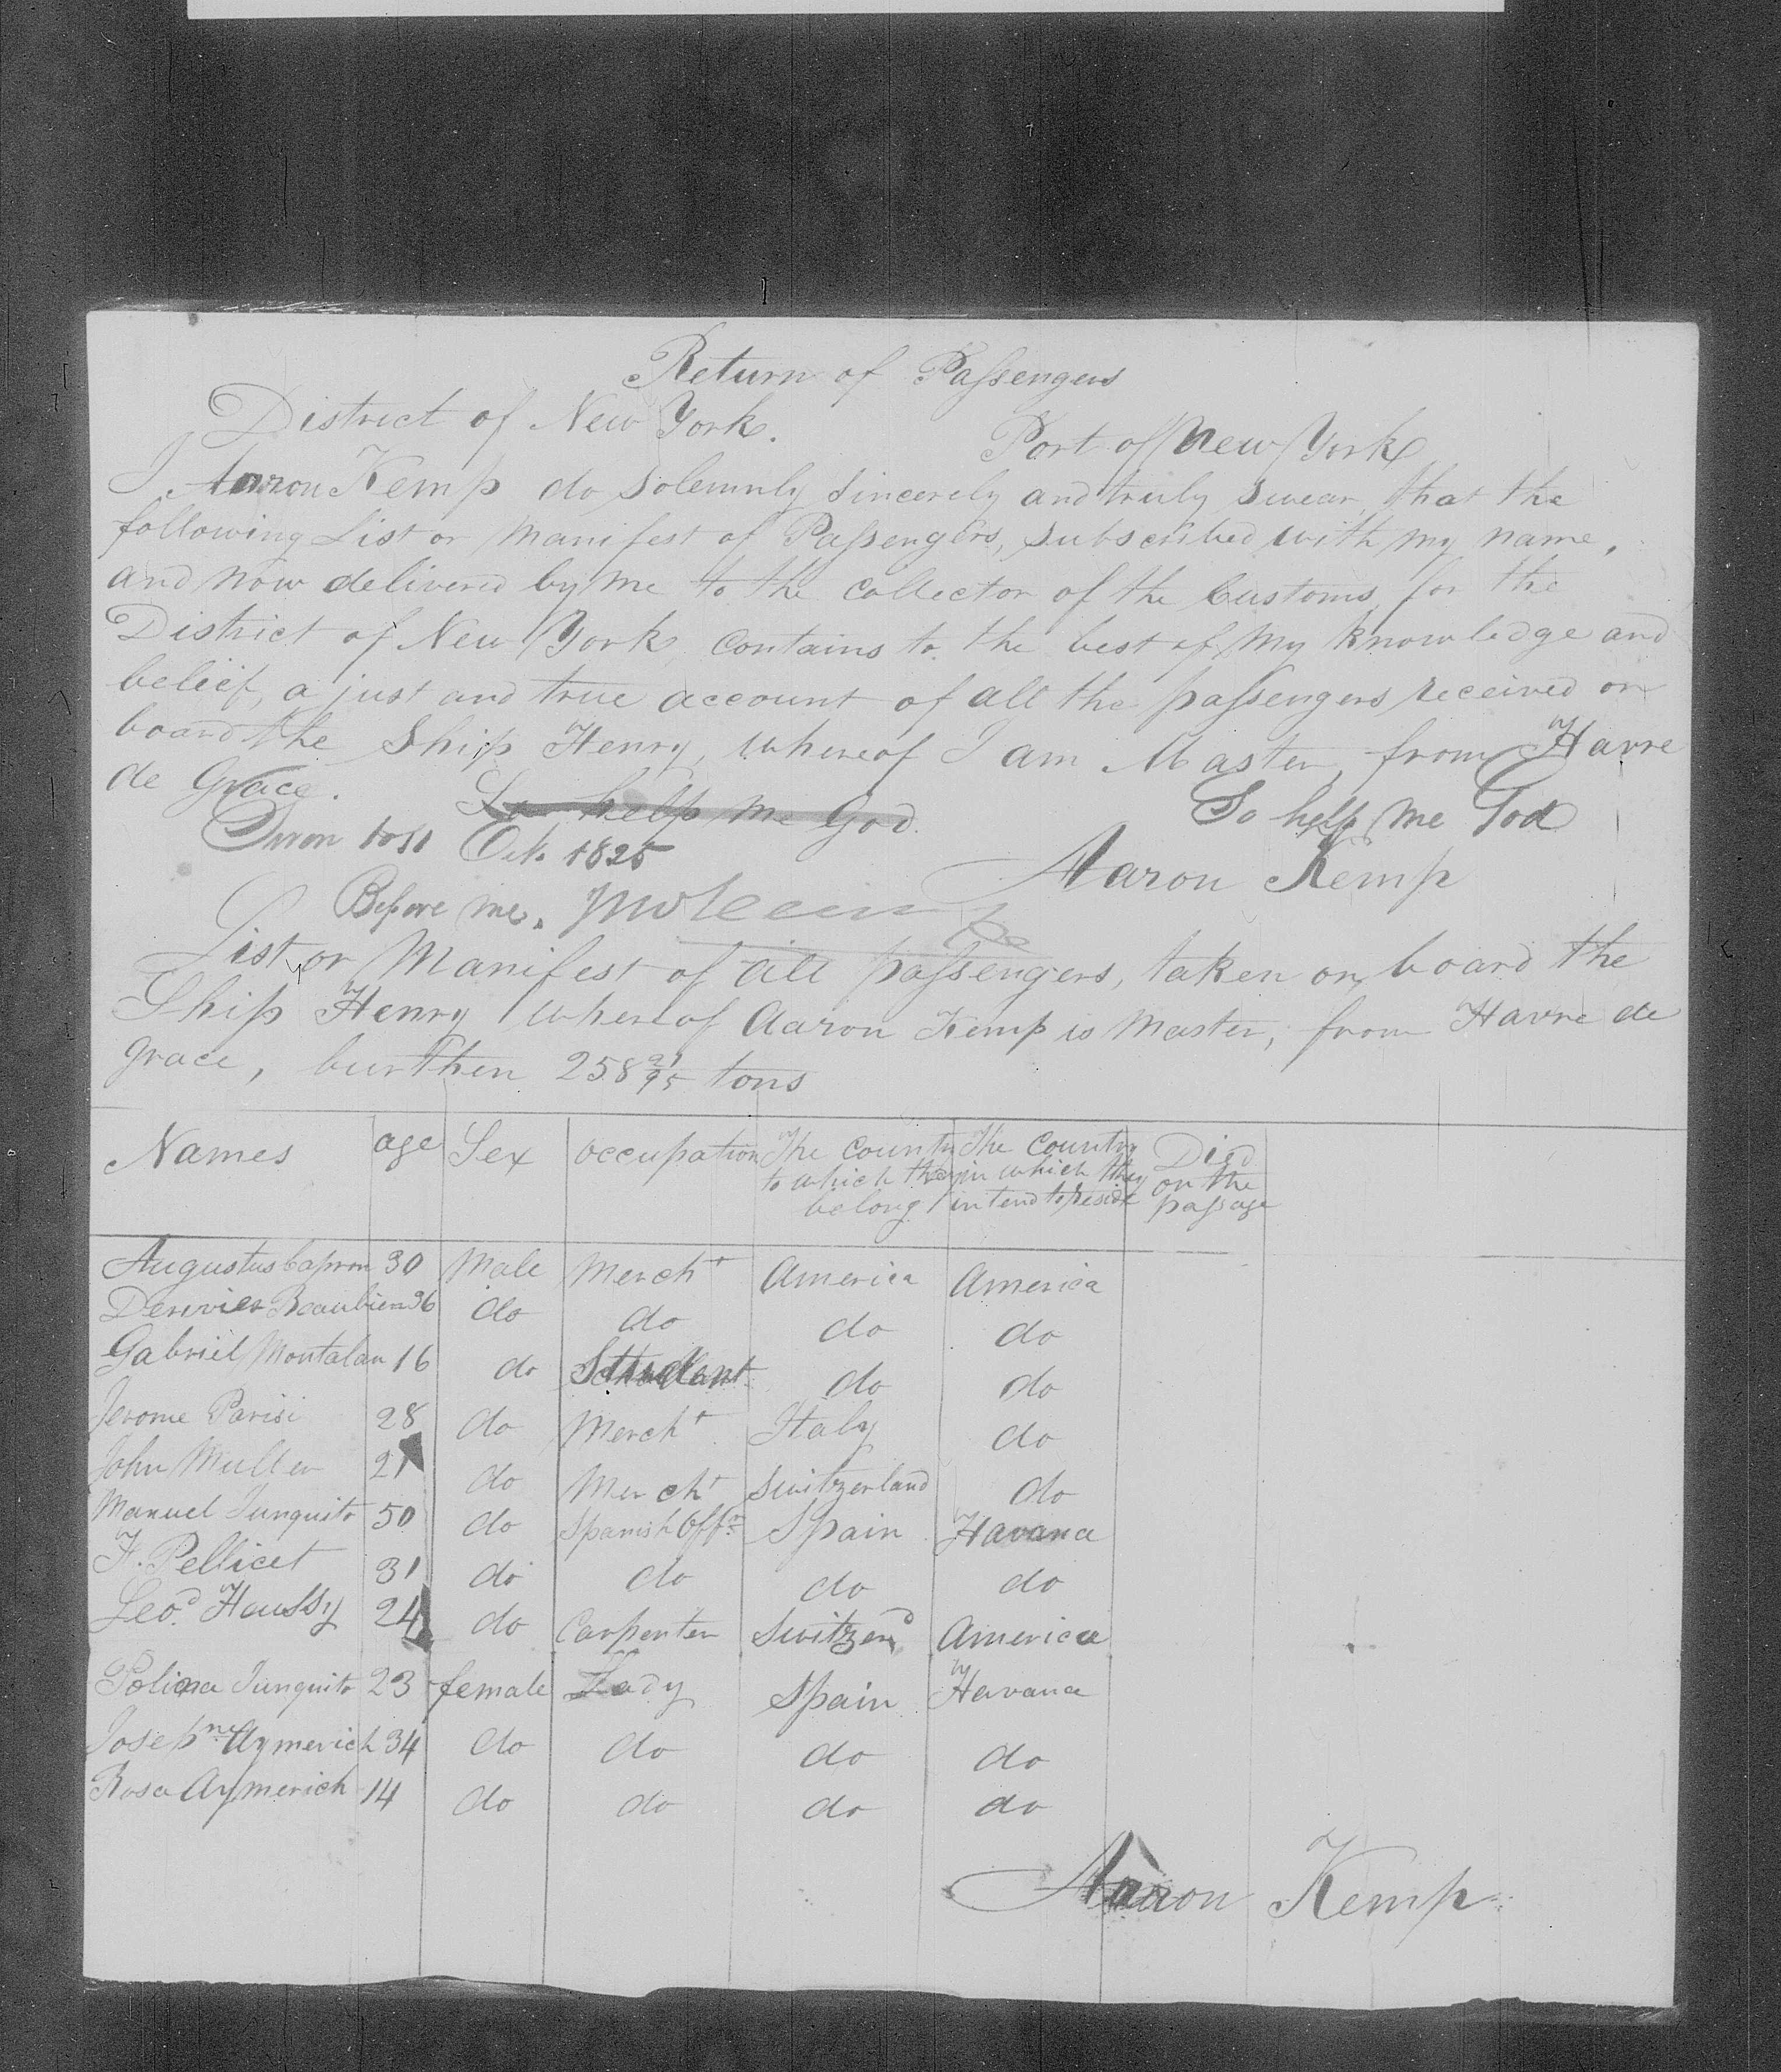 Return of Passengers
District of New York. Port of New York
I Aaron Kemp do solemnly sincerely and truly swear, that the
following List or Manifest of Passengers, subscribed with my name,
and now delivered by me to the Collector of the Customs for the
District of New York, contains to the best of my knowledge and
belief, a just and true account of all the passengers received on
board the Ship Henry, whereof I am Master, from Havre
de Grace. So help me God. So help me God
Octo 1825
Aaron Kemp
Before me,
List or Manifest of all passengers, taken on board the
Ship Henry whereof Aaron Kemp is Master, from Havre de
grace, burthen 258 21/95 tons
Names age Sex occupation The Country to which they belong The Country in which they intend to reside Died on the passage
Augustus Capron 30 Male Mercht America America
Beaubien 36 do do do do
Gabriel Montalan 16 do Student do do
Jerome Parisi 28 do Mercht Italy do
John Muller 21 do Mercht Switzerland do
Manuel Junquito 50 do Spanish Offr Spain Havana
F. Pellicet 31 do do do do
Leod. Haussy 24 do Carpenter Switzerd America
Polina Junquito 23 female Lady Spain Havana
Josephne Aymerich 34 do do do do
Rosa Aymerich 14 do do do do
Aaron Kemp